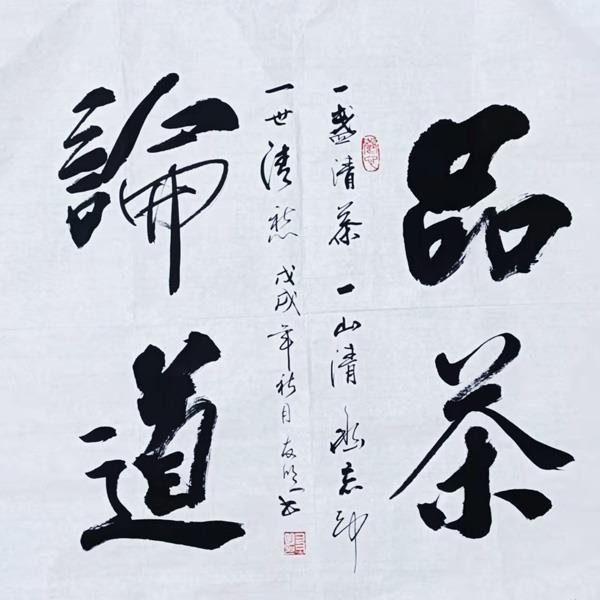 品茶
一盏清茶一山清幽忘却
一世清愁戊戌年秋月友书
論道